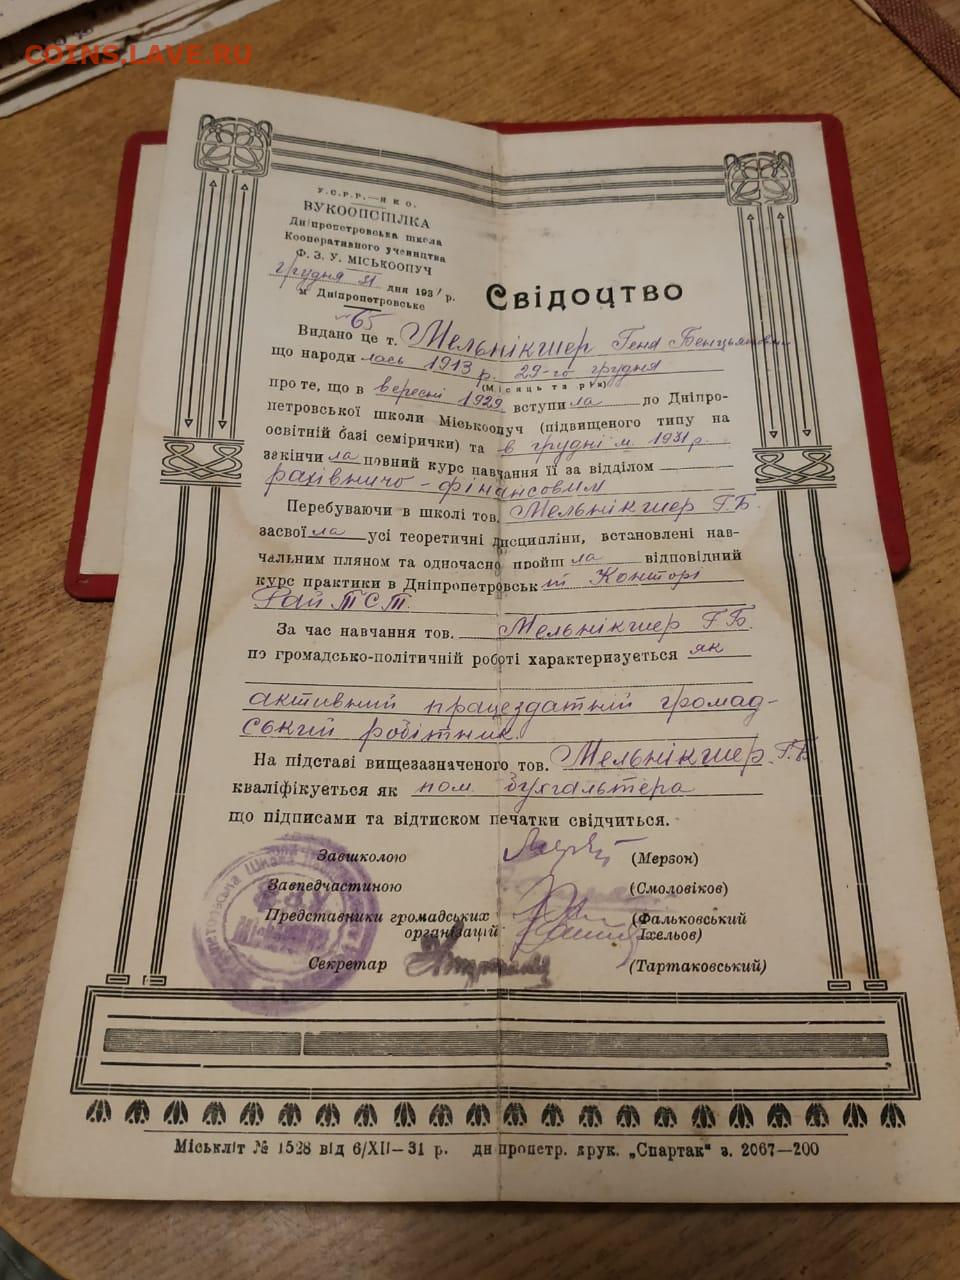 COINS.LAVE.RU
У.С.Р.Р.—Н К О.
ВУКООПСПІЛКА
Дніпропетровська школа
Кооперативного учеництва
Ф. З. У. МІСЬКООПУЧ
грудня 31 дня 1931 р.
м Дніпропетровське
№ 65
Свідоцтво
Видано це т. Мельнікшер Геня Бенцьяновн
що народи лась 1913 р. 29-го грудня
(Місяць та рік)
про те, що в вересні 1929 вступи ла до Дніпро-
петровської школи Міськоопуч (підвищеного типу на
освітній базі семірички) та в грудні м. 1931 р.
закінчи ла повний курс навчання її за відділом
рахівничо-фінансовим
Перебуваючи в школі тов. Мельнікшер Г. Б.
засвої ла усі теоретичні дисципліни, встановлені нав-
чальним пляном та одночасно пройш ла відповідний
курс практики в Дніпропетровськ ій Конторі
Рай ТСТ.
За час навчання тов. Мельнікшер Г Б.
по громадсько-політичній роботі характеризується як
активний працездатній громад-
ський робітник.
На підставі вищезазначеного тов. Мельнікшер Г. Б
кваліфікується як пом. бухгальтера
що підписами та відтиском печатки свідчиться.
Завшколою (Мерзон)
Завпедчастиною (Смоловіков)
Представники громадських (Фальковський
організацій Іхельов)
Секретар (Тартаковський)
Міськліт № 1528 від 6/XII—31 р. дніпропетр. друк. „Спартак" з. 2067—200